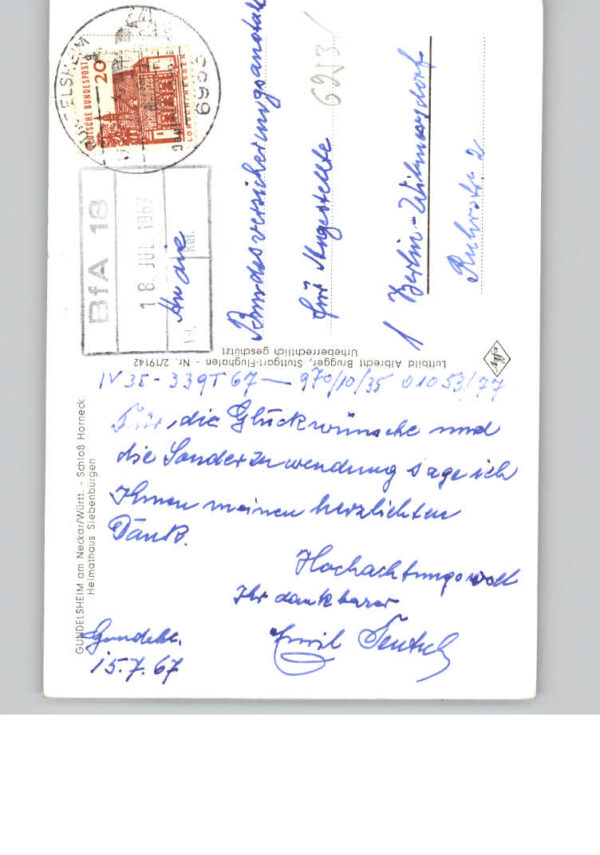 GUNDELSHEIM
6953
DEUTSCHE BUNDESPOST
20
LORSCH/HESSEN
BfA 18
18. JUL. 1967
An die
Bundesversicherungsanstalt
für Angestellte
1 Berlin-Wilmersdorf
Ruhrstr. 2
Luftbild Albrecht Brugger, Stuttgart-Flughafen - Nr. 2/19142
Urheberrechtlich geschützt
IV 35 - 339 T 67 — 970/10/35 01053/77
Für die Glückwünsche und
die Sonderzuwendung sage ich
Ihnen meinen herzlichten
Dank.
Hochachtungsvoll
Ihr dankbarer
Emil Teutsch
Gundelsh.
15.7.67
GUNDELSHEIM am Neckar/Württ. - Schloß Horneck
Heimathaus Siebenbürgen